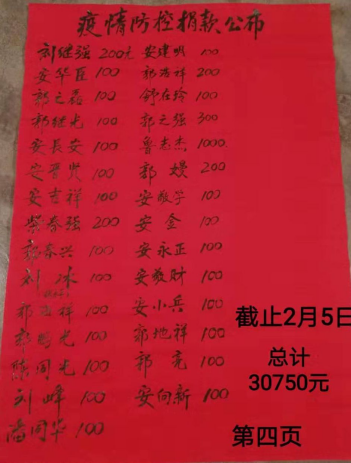 疫情防控捐款公布
刘继强 200元 安建明 100
安华臣 100 郭吉祥 200
郭之磊 100 舒在玲 100
郭继光 100 郭之强 300
安长安 100 鲁志杰 1000
安晋贤 100 郭嫒 200
安吉祥 100 安敬宇 100
柴春强 200 安奎 100
郭春兴 100 安永正 100
刘冰 100 安发财 100
郭祥 100 安小兵 100
郭光 100 郭地祥 100
陈同光 100 郭亮 100
刘峰 100 安向新 100
潘同华 100
截止2月5日
总计
30750元
第四页